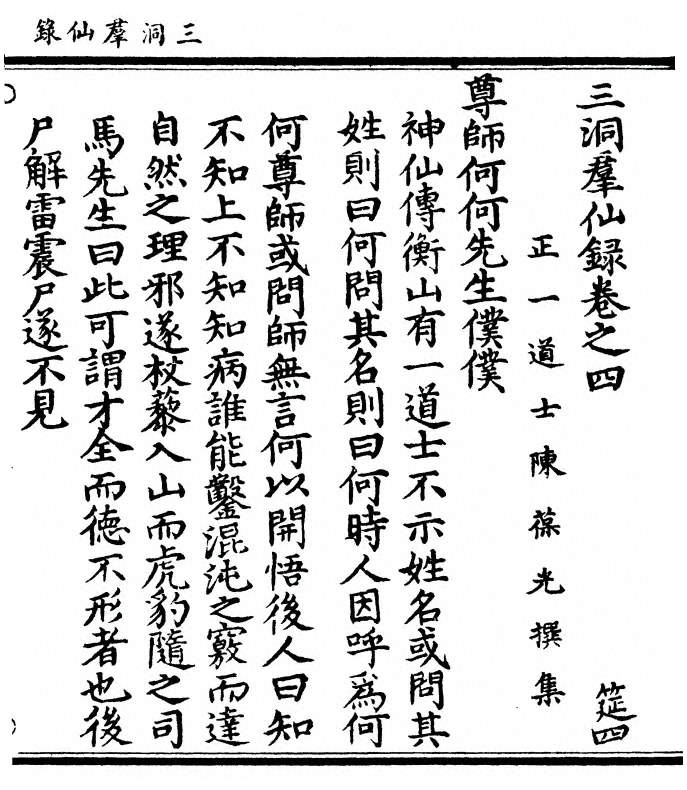 三洞羣仙錄
三洞羣仙録卷之四 筵四
正一道士陳葆光撰集
尊師何何先生僕僕
神仙傳衡山有一道士不示姓名或問其
姓則曰何問其名則曰何時人因呼爲何
何尊師或問師無言何以開悟後人曰知
不知上不知知病誰能鑿混沌之竅而達
自然之理邪遂杖藜入山而虎豹隨之司
馬先生曰此可謂才全而德不形者也後
尸解雷震尸遂不見